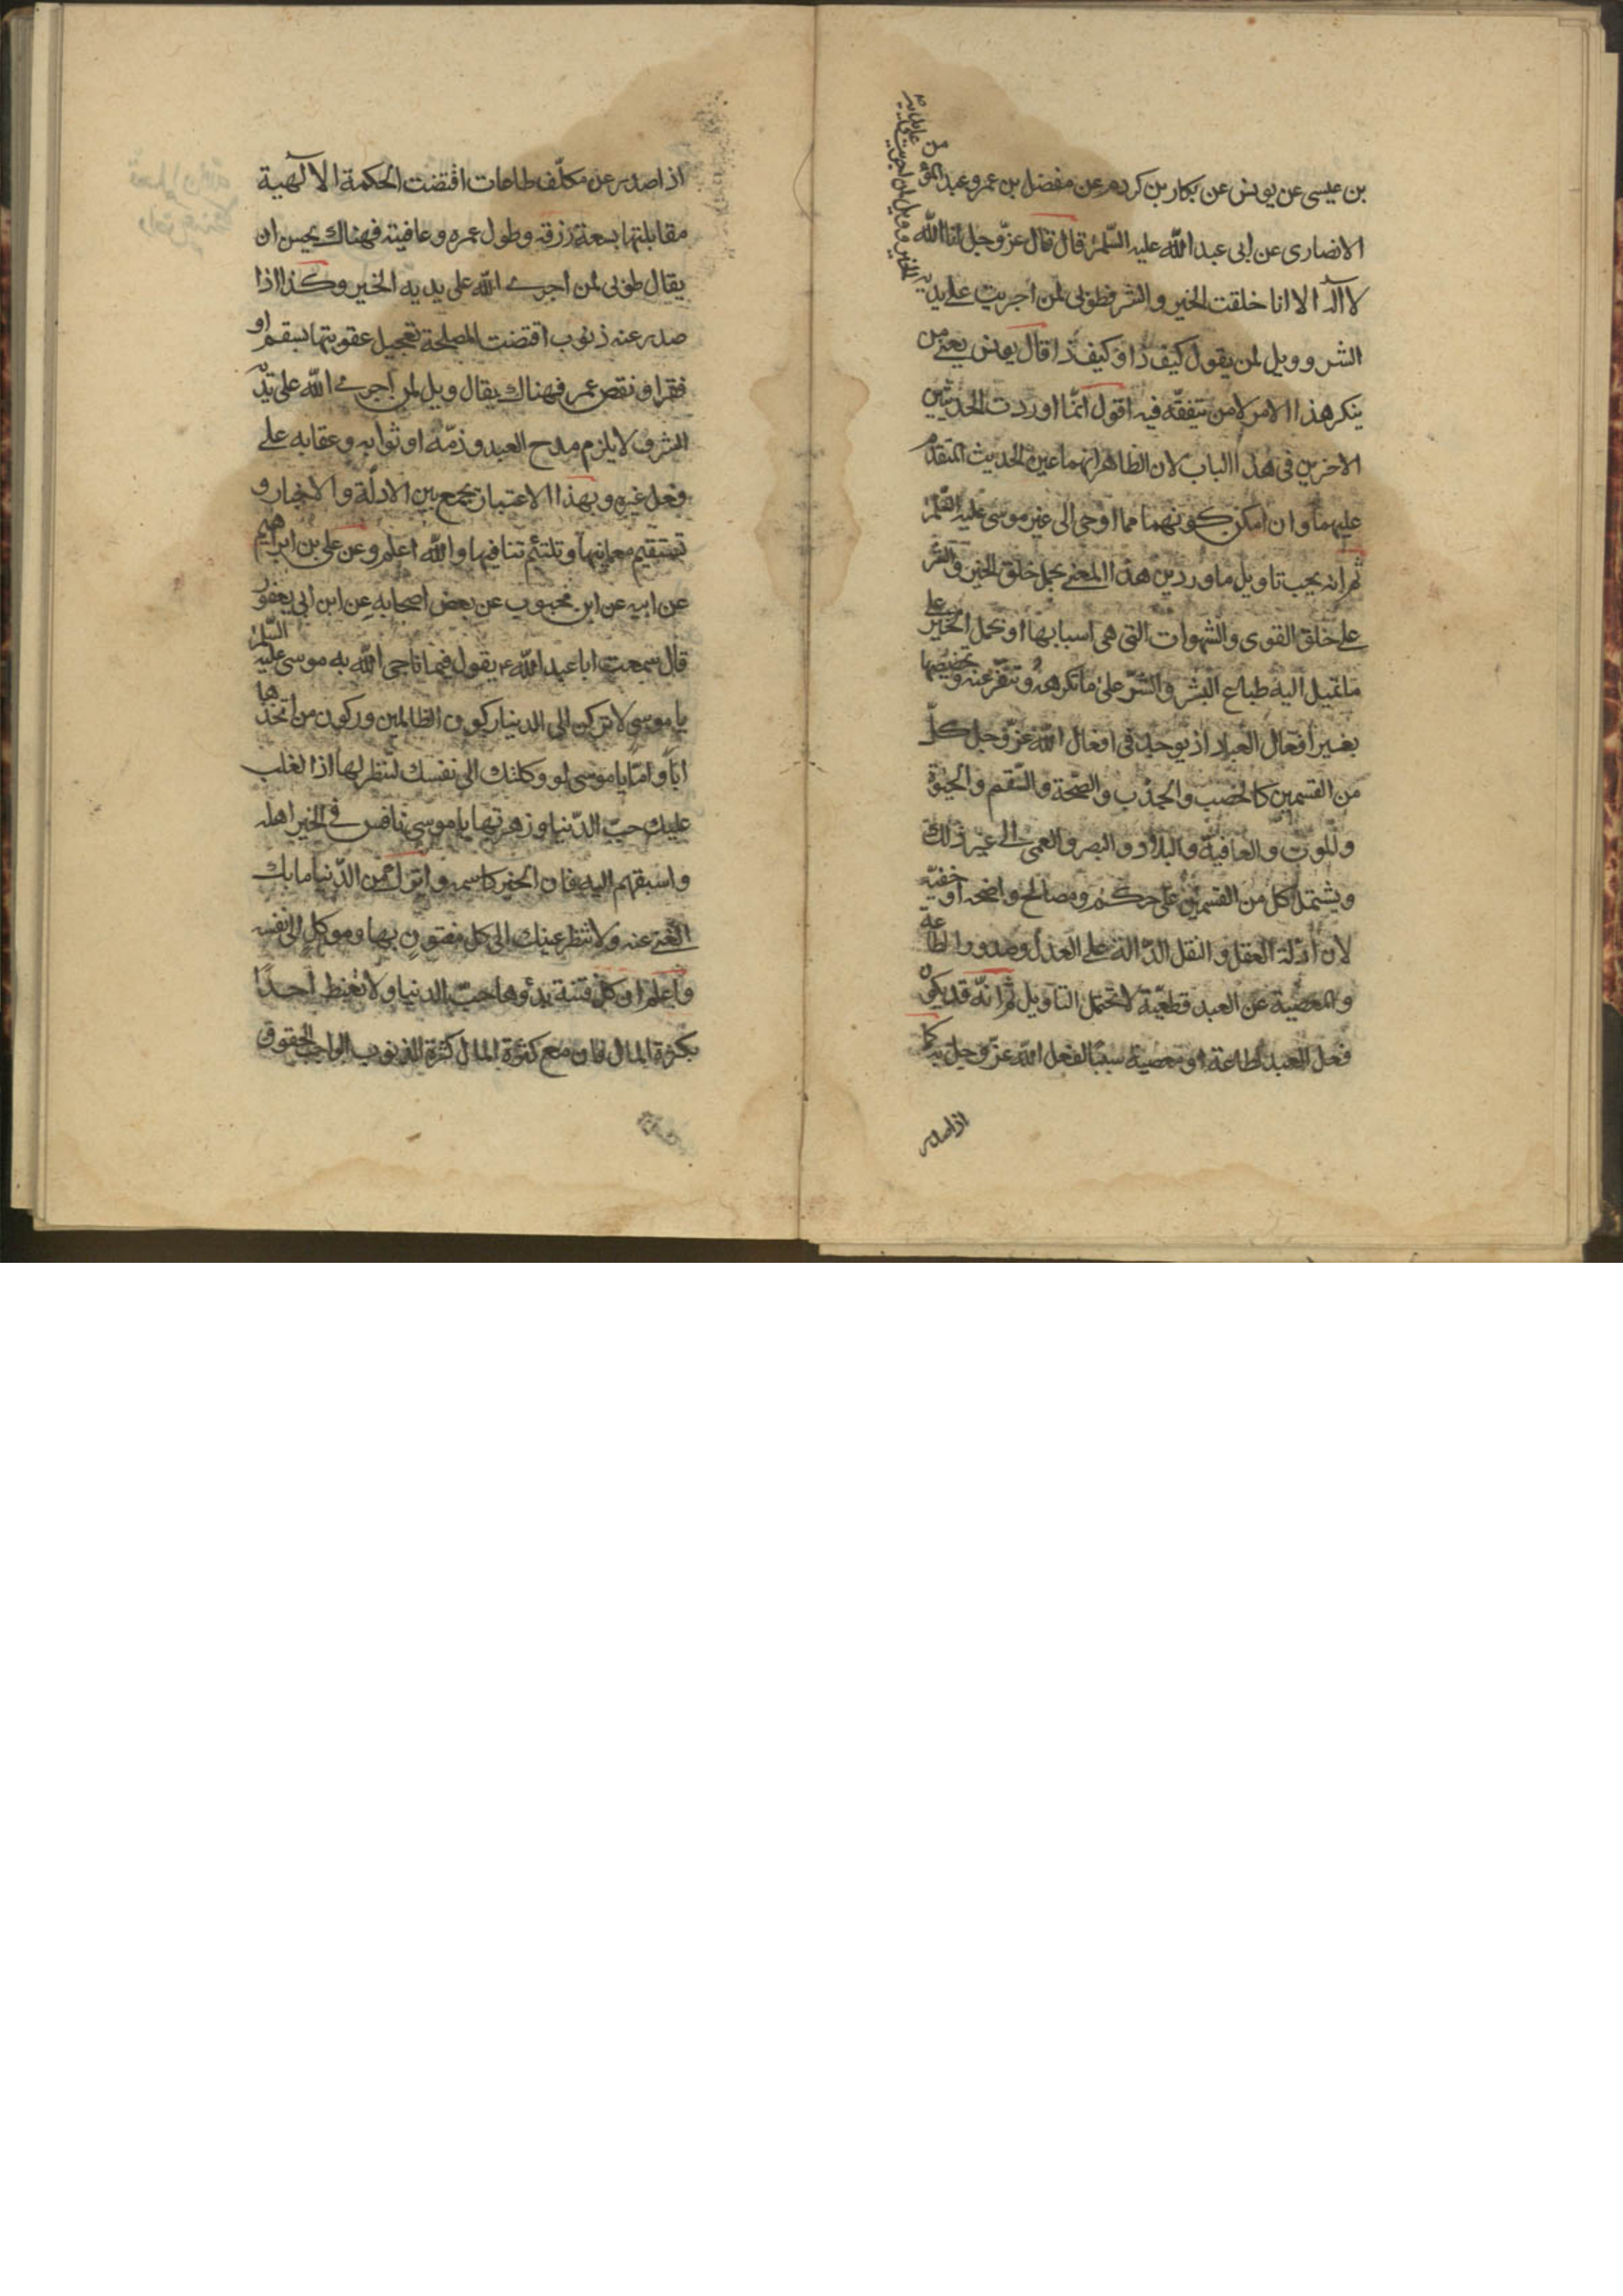 بن عيسى عن يونس عن بكار بن كردم عن مفضل بن عمر و عبد المؤمن
الانصارى عن ابى عبد الله عليه السّلم قال قال عزّ وجل انا الله
لا اله الا انا خلقت الخير و الشر فطوبى لمن اجريت على يديه
الخير و ويل لمن اجريت على يديه
الشر و ويل لمن يقول كيف ذا و كيف ذا قال يونس يعنى من
ينكر هذا الامر لا من يتفقّه فيه اقول انّما اوردت الحديثين
الاخرين فى هذا الباب لان الظاهر انهما عين الحديث المتقدم
عليهما و ان امكن كونهما مما اوحى الى غير موسى عليه السّلم
ثم انه يجب تاويل ما ورد من هذا المعنى بحمل خلق الخير و الشر
على خلق القوى و الشهوات التى هى اسبابها او بحمل الخير على
ما تميل اليه طباع البشر و الشرّ على ما تكرهه و تنفر عنه و تخصيصها
بغير افعال العباد اذ يوجد فى افعال الله عزّ وجل كلّ
من القسمين كالخصب و الجدب و الصّحة و السّقم و الحيوة
و الموت و العافية و البلاء و البصر و العمى الى غير ذلك
و يشتمل كل من القسمين على حكم و مصالح واضحة او خفيّة
لان ادلة العقل و النقل الدّالة على العدل و صدور الطاعة
و المعصية عن العبد قطعيّة لا تحتمل التاويل ثم انّه قد يكون
فعل العبد لطاعة او معصية سببا لفعل الله عزّ وجل كما
اذا صدر
اذا صدر عن مكلّف طاعات اقتضت الحكمة الالهية
مقابلتها بسعة رزقه و طول عمره و عافيته فهناك يحسن ان
يقال طوبى لمن اجرى الله على يديه الخير و كذا اذا
صدر عنه ذنوب اقتضت المصلحة تعجيل عقوبتها بسقم او
فقر او نقص عمر فهناك يقال ويل لمن اجرى الله على يديه
الشر و لا يلزم مدح العبد و ذمّه او ثوابه و عقابه على
فعل غيره و بهذا الاعتبار يجمع بين الادلّة و الاخبار و
تستقيم معانيها و تلتئم تنافيها و الله اعلم و عن على بن ابراهيم
عن ابيه عن ابن محبوب عن بعض اصحابه عن ابن ابى يعفور
قال سمعت ابا عبد الله ع يقول فيما ناجى الله به موسى عليه السّلم
يا موسى لا تركن الى الدنيا ركون الظالمين و ركون من اتخذها
ابا و امّا يا موسى لو وكلتك الى نفسك لتنظر لها اذا لغلب
عليك حبّ الدّنيا و زهرتها يا موسى نافس فى الخير اهله
و اسبقهم اليه فان الخير كاسمه و اترك من الدّنيا ما بك
الغنى عنه و لا تنظر عينك الى كل مفتون بها و موكل الى نفسه
و اعلم ان كل فتنة بدؤها حبّ الدنيا و لا تغبط احدًا
بكثرة المال فان مع كثرة المال كثرة الذنوب لواجب الحقوق